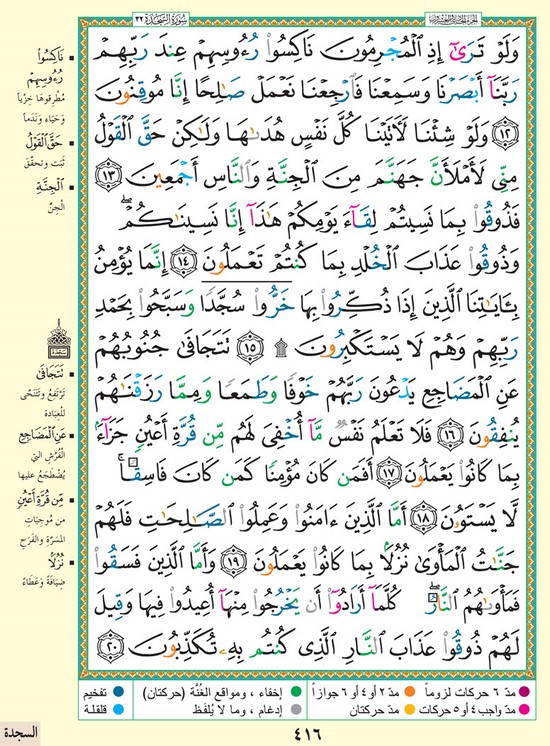 سُورَةُ السَّجْدَةِ ٣٢
وَلَوْ تَرَىٰٓ إِذِ ٱلْمُجْرِمُونَ نَاكِسُوا۟ رُءُوسِهِمْ عِندَ رَبِّهِمْ
رَبَّنَآ أَبْصَرْنَا وَسَمِعْنَا فَٱرْجِعْنَا نَعْمَلْ صَٰلِحًا إِنَّا مُوقِنُونَ
١٢ وَلَوْ شِئْنَا لَءَاتَيْنَا كُلَّ نَفْسٍ هُدَىٰهَا وَلَٰكِنْ حَقَّ ٱلْقَوْلُ
مِنِّى لَأَمْلَأَنَّ جَهَنَّمَ مِنَ ٱلْجِنَّةِ وَٱلنَّاسِ أَجْمَعِينَ ١٣
فَذُوقُوا۟ بِمَا نَسِيتُمْ لِقَآءَ يَوْمِكُمْ هَٰذَآ إِنَّا نَسِينَٰكُمْ ۖ
وَذُوقُوا۟ عَذَابَ ٱلْخُلْدِ بِمَا كُنتُمْ تَعْمَلُونَ ١٤ إِنَّمَا يُؤْمِنُ
بِـَٔايَٰتِنَا ٱلَّذِينَ إِذَا ذُكِّرُوا۟ بِهَا خَرُّوا۟ سُجَّدًا وَسَبَّحُوا۟ بِحَمْدِ
رَبِّهِمْ وَهُمْ لَا يَسْتَكْبِرُونَ ١٥ ۩ تَتَجَافَىٰ جُنُوبُهُمْ
عَنِ ٱلْمَضَاجِعِ يَدْعُونَ رَبَّهُمْ خَوْفًا وَطَمَعًا وَمِمَّا رَزَقْنَٰهُمْ
يُنفِقُونَ ١٦ فَلَا تَعْلَمُ نَفْسٌ مَّآ أُخْفِىَ لَهُم مِّن قُرَّةِ أَعْيُنٍ جَزَآءًۢ
بِمَا كَانُوا۟ يَعْمَلُونَ ١٧ أَفَمَن كَانَ مُؤْمِنًا كَمَن كَانَ فَاسِقًا ۚ
لَّا يَسْتَوُۥنَ ١٨ أَمَّا ٱلَّذِينَ ءَامَنُوا۟ وَعَمِلُوا۟ ٱلصَّٰلِحَٰتِ فَلَهُمْ
جَنَّٰتُ ٱلْمَأْوَىٰ نُزُلًۢا بِمَا كَانُوا۟ يَعْمَلُونَ ١٩ وَأَمَّا ٱلَّذِينَ فَسَقُوا۟
فَمَأْوَىٰهُمُ ٱلنَّارُ ۖ كُلَّمَآ أَرَادُوٓا۟ أَن يَخْرُجُوا۟ مِنْهَآ أُعِيدُوا۟ فِيهَا وَقِيلَ
لَهُمْ ذُوقُوا۟ عَذَابَ ٱلنَّارِ ٱلَّذِى كُنتُم بِهِۦ تُكَذِّبُونَ ٢٠
نَاكِسُوا۟
رُءُوسِهِمْ
مُطْرِقُوهَا خِزْيًا
وَحَيَاء وَنَدَمًا
حَقَّ الْقَوْلُ
ثَبَتَ وتحقَّقَ
الْجِنَّةِ
الجِنِّ
تَتَجَافَىٰ
تَرْتَفِعُ وتَتَنَحَّى
للْعِبَادَة
عَنِ الْمَضَاجِعِ
الفُرُشِ التي
يُضْطَجَعُ عليها
مِّن قُرَّةِ أَعْيُنٍ
من مُوجِبَاتِ
المسَرَّة والفَرَحِ
نُزُلًا
ضِيَافَةً وَعَطَاءً
مدّ ٦ حركات لزوماً
مدّ ٢ أو ٤ أو ٦ جوازاً
إخفاء، ومواقع الغُنَّة (حركتان)
تفخيم
مدّ واجب ٤ أو ٥ حركات
مدّ حركتان
إدغام، وما لا يُلفَظ
قلقلة
٤١٦
السجدة